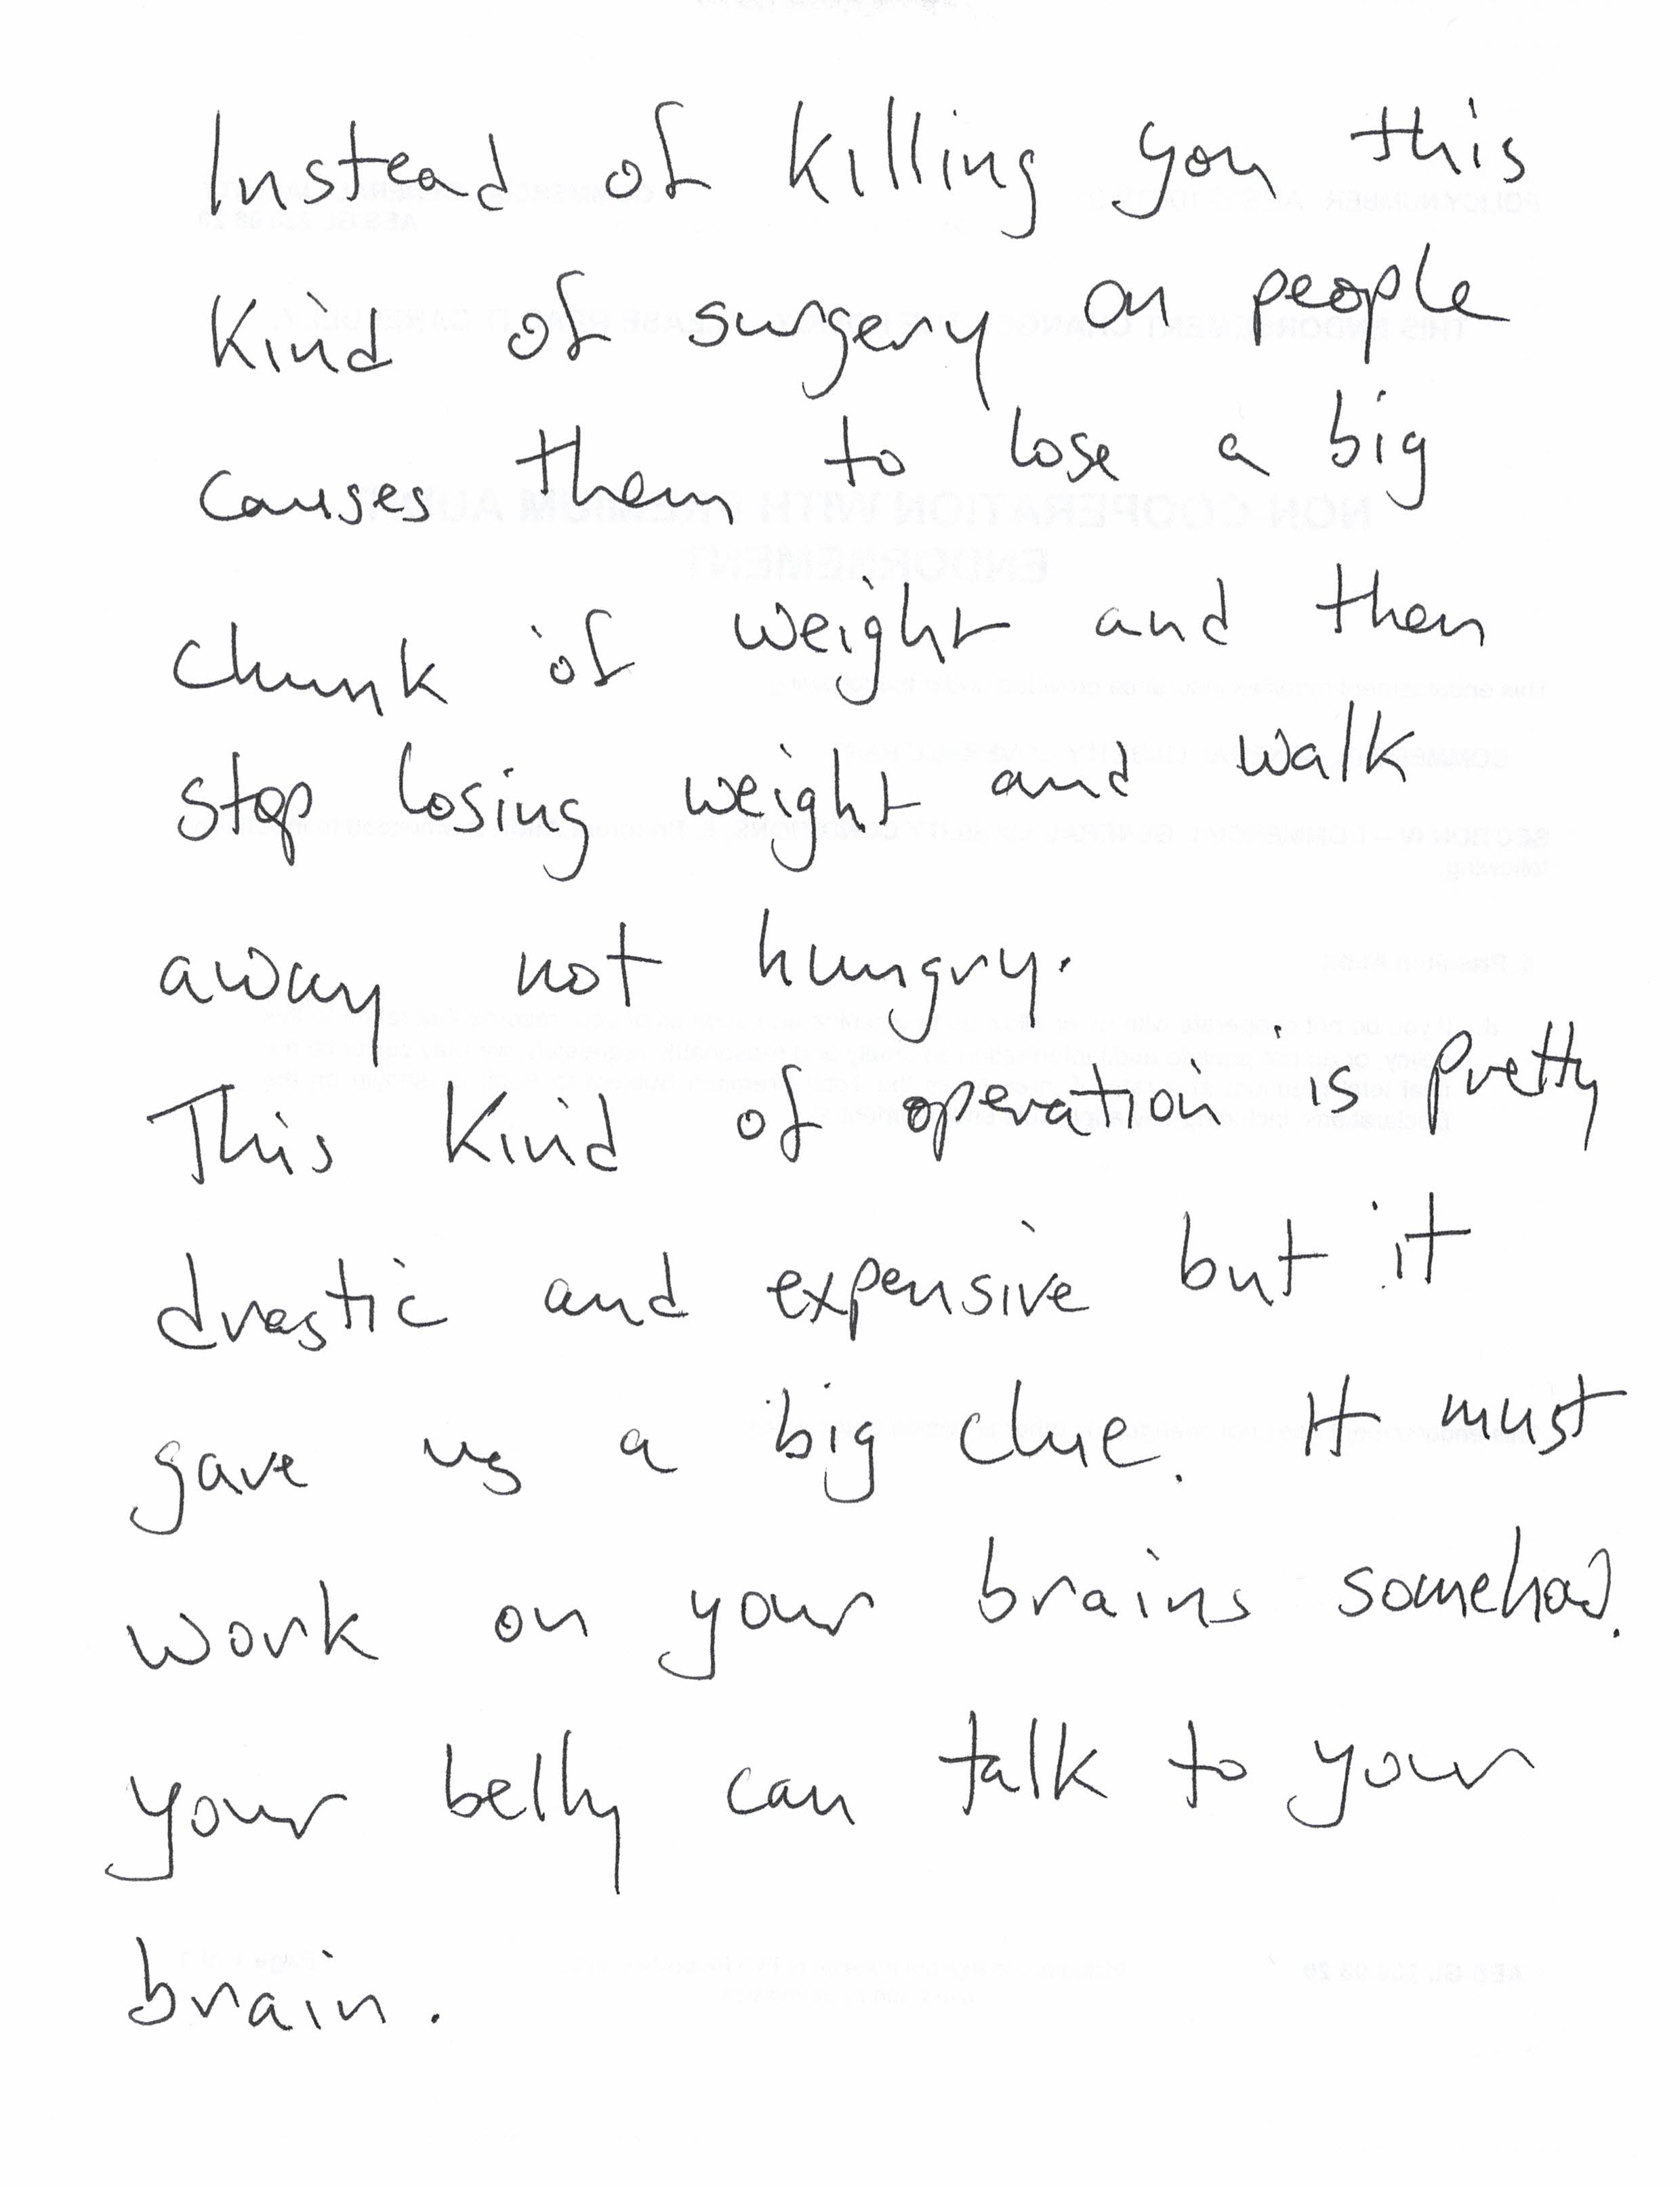 Instead of killing you this
kind of surgery on people
causes them to lose a big
chunk of weight and then
stop losing weight and walk
away not hungry.
This kind of operation is pretty
drastic and expensive but it
gave us a big clue. It must
work on your brains somehow.
your belly can talk to your
brain.